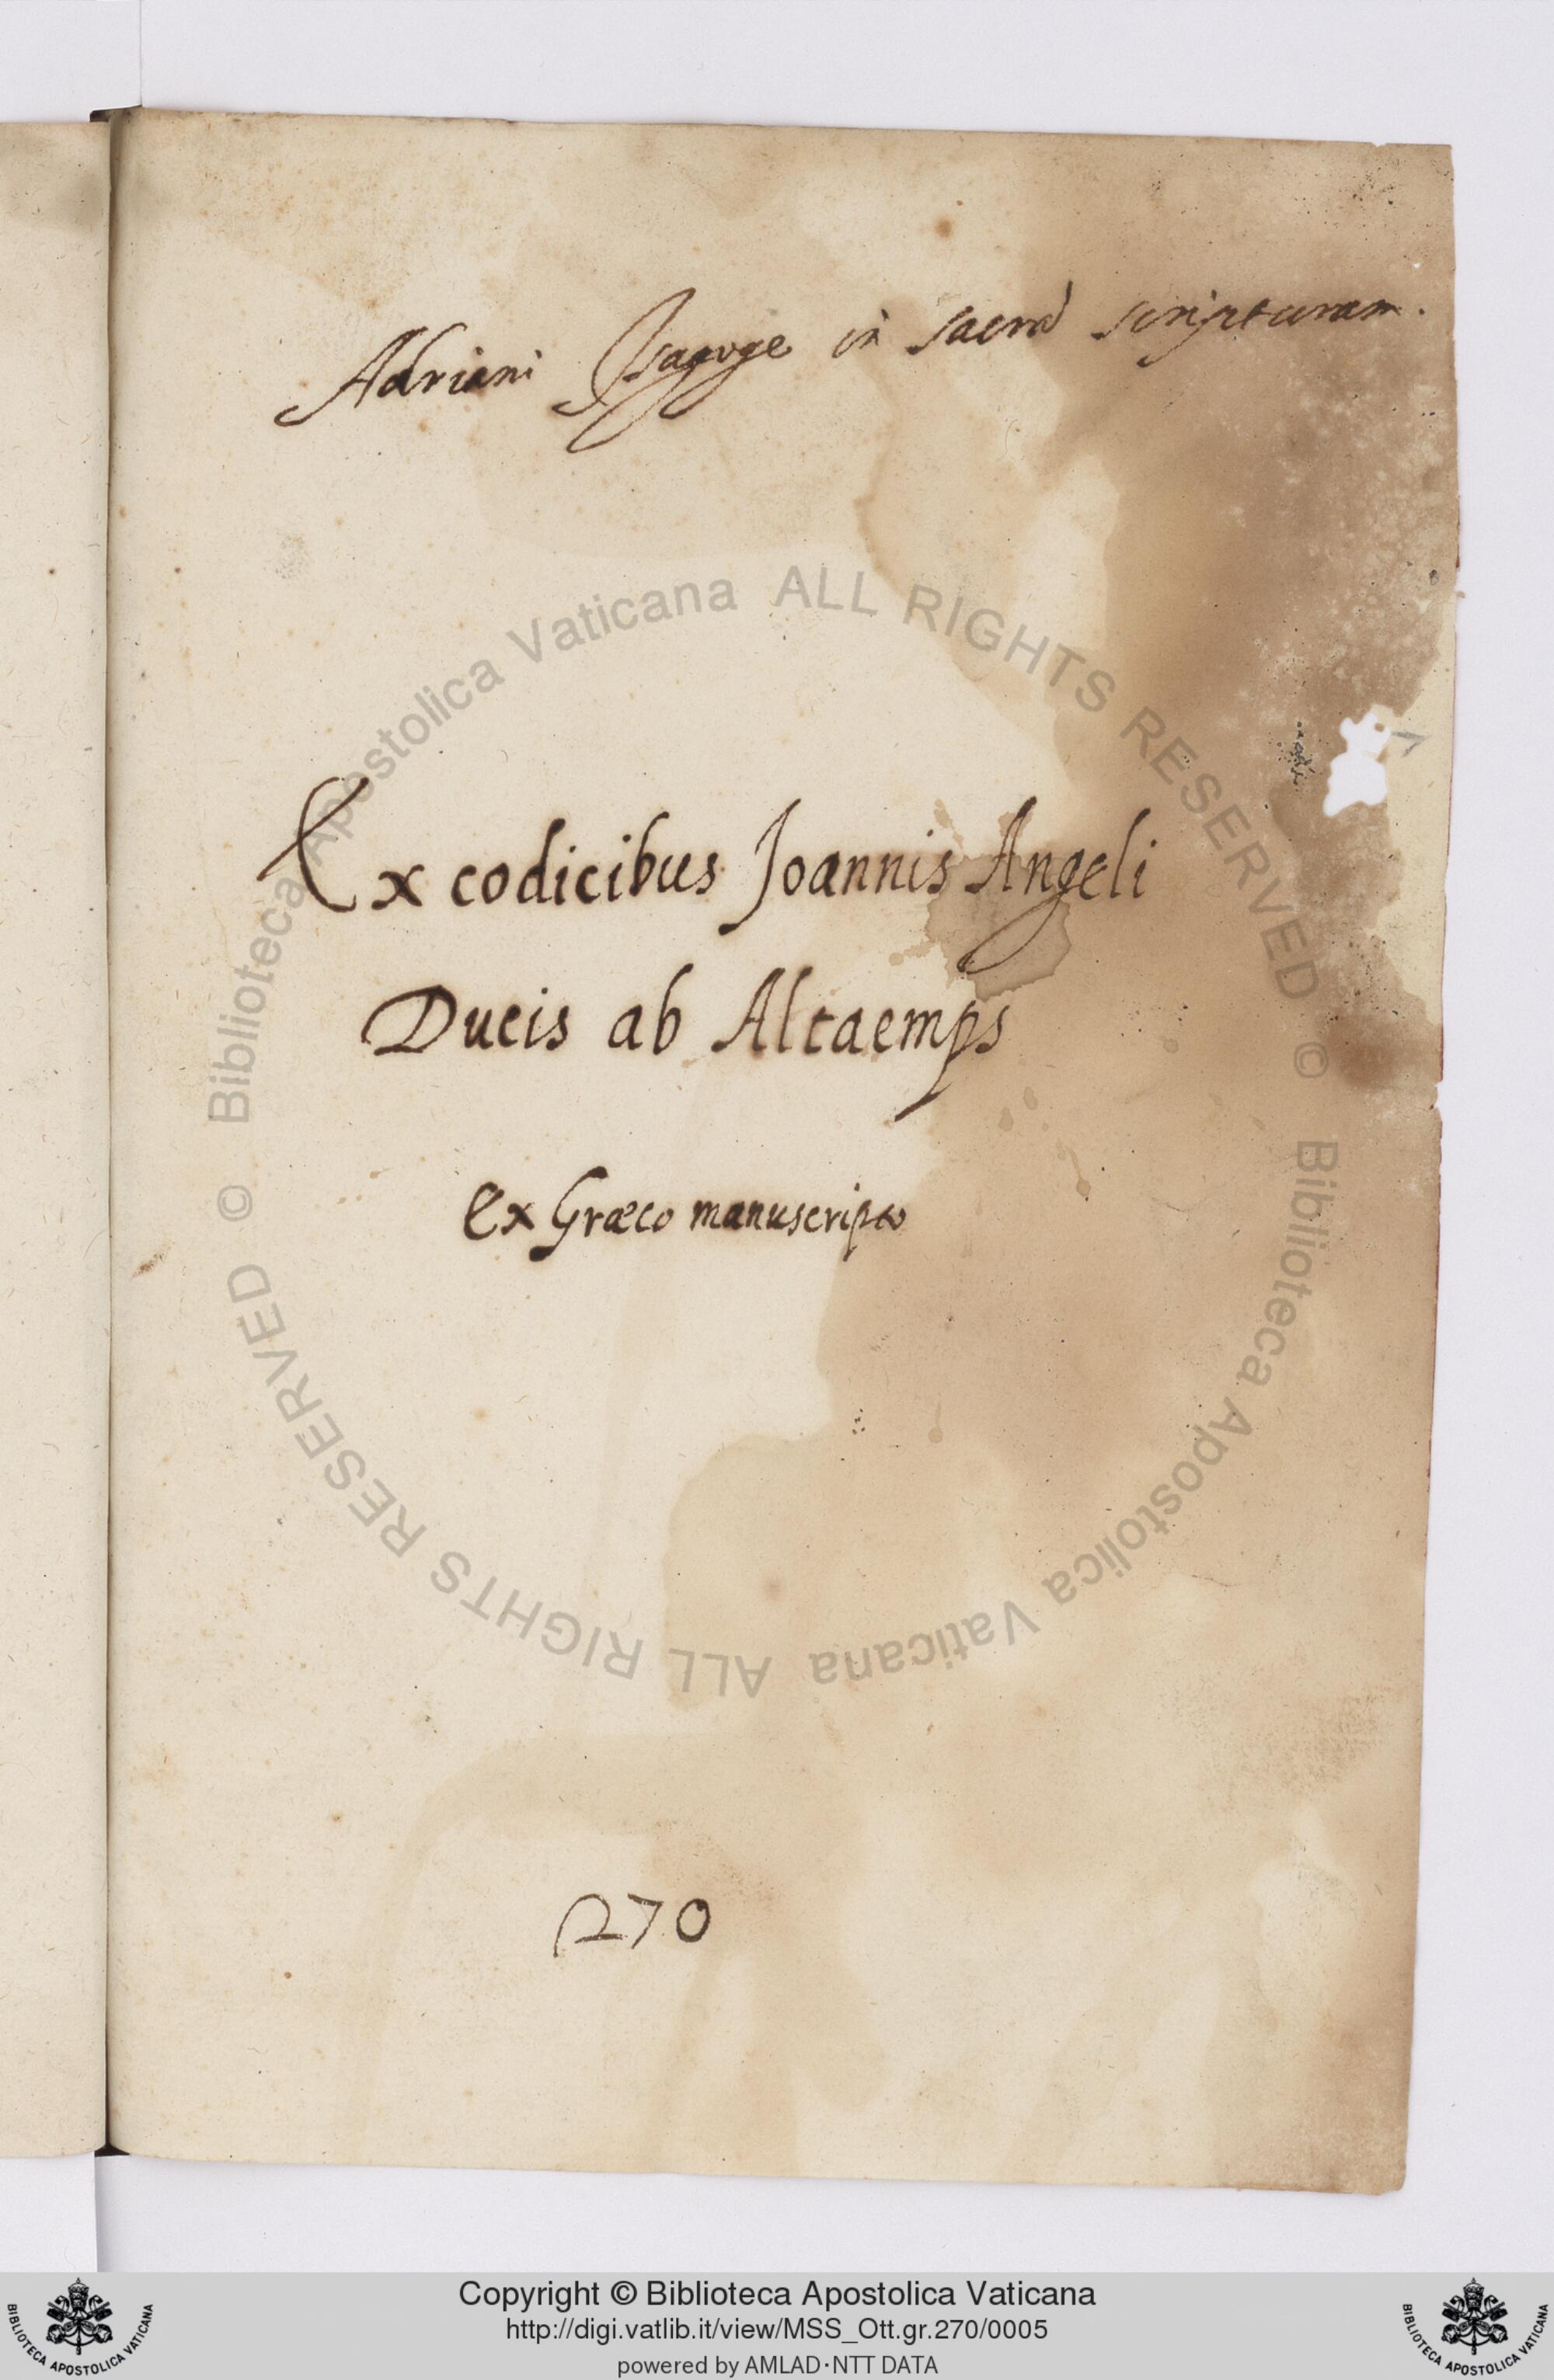 Adriani Isagoge in sacrā scripturam.
Ex codicibus Joannis Angeli
Ducis ab Altaemps
Ex Græco manuscripto
270
© Biblioteca Apostolica Vaticana ALL RIGHTS RESERVED
© Biblioteca Apostolica Vaticana ALL RIGHTS RESERVED
Copyright © Biblioteca Apostolica Vaticana
http://digi.vatlib.it/view/MSS_Ott.gr.270/0005
powered by AMLAD·NTT DATA
BIBLIOTECA APOSTOLICA VATICANA
BIBLIOTECA APOSTOLICA VATICANA